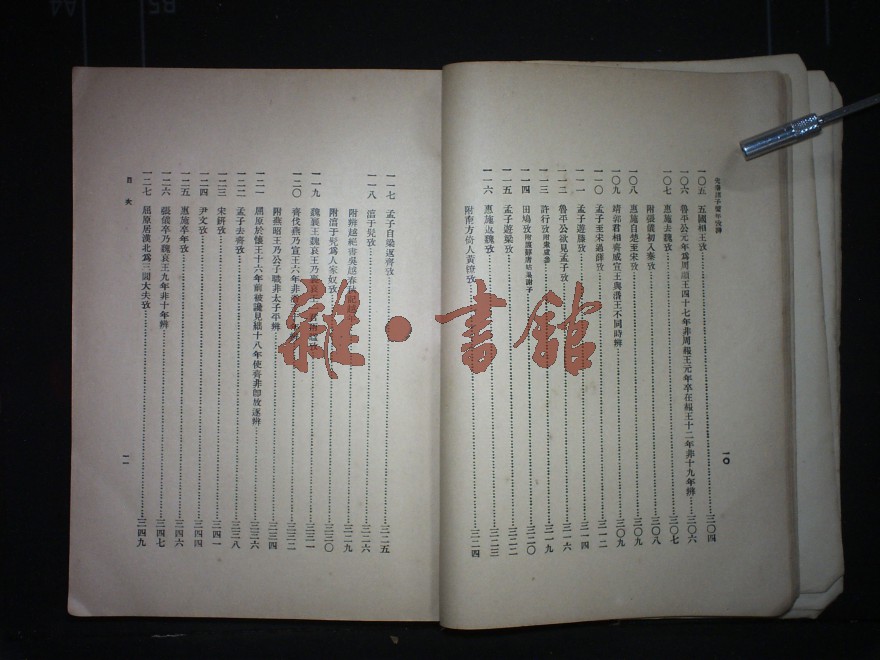 先秦諸子繫年攷辨
一〇五 五國相王攷 三〇四
一〇六 魯平公元年爲周顯王四十七年非周赧王元年卒在赧王十二年非十九年辨 三〇六
一〇七 惠施去魏攷 三〇七
附張儀初入秦攷 三〇八
一〇八 惠施自楚至宋攷 三〇九
一〇九 靖郭君相齊威宣王與湣王不同時辨 三〇九
一一〇 孟子至宋過薛攷 三一二
一一一 孟子遊滕攷 三一四
一一二 魯平公欲見孟子攷 三一六
一一三 許行攷 三一九
一一四 田鳩攷 三二〇
一一五 孟子遊梁攷 三二二
一一六 惠施返魏攷 三二三
附南方倚人黃繚攷 三二四
一〇
一一七 孟子自梁返齊攷 三二五
一一八 淳于髡攷 三二六
附辨越絕書吳越春秋記越 三二九
附淳于髡爲人家奴攷 三三〇
一一九 魏襄王魏哀王乃襄哀 三三一
一二〇 齊伐燕乃宣王六年非 三三二
附燕昭王乃公子職非太子平辨 三三四
一二一 屈原於懷王十六年前被讒見絀十八年使齊非卽放逐辨 三三六
一二二 孟子去齊攷 三三八
一二三 宋鈃攷 三四一
一二四 尹文攷 三四四
一二五 惠施卒年攷 三四六
一二六 張儀卒乃魏哀王九年非十年辨 三四七
一二七 屈原居漢北爲三閭大夫攷 三四九
目次
一一
雜·書館